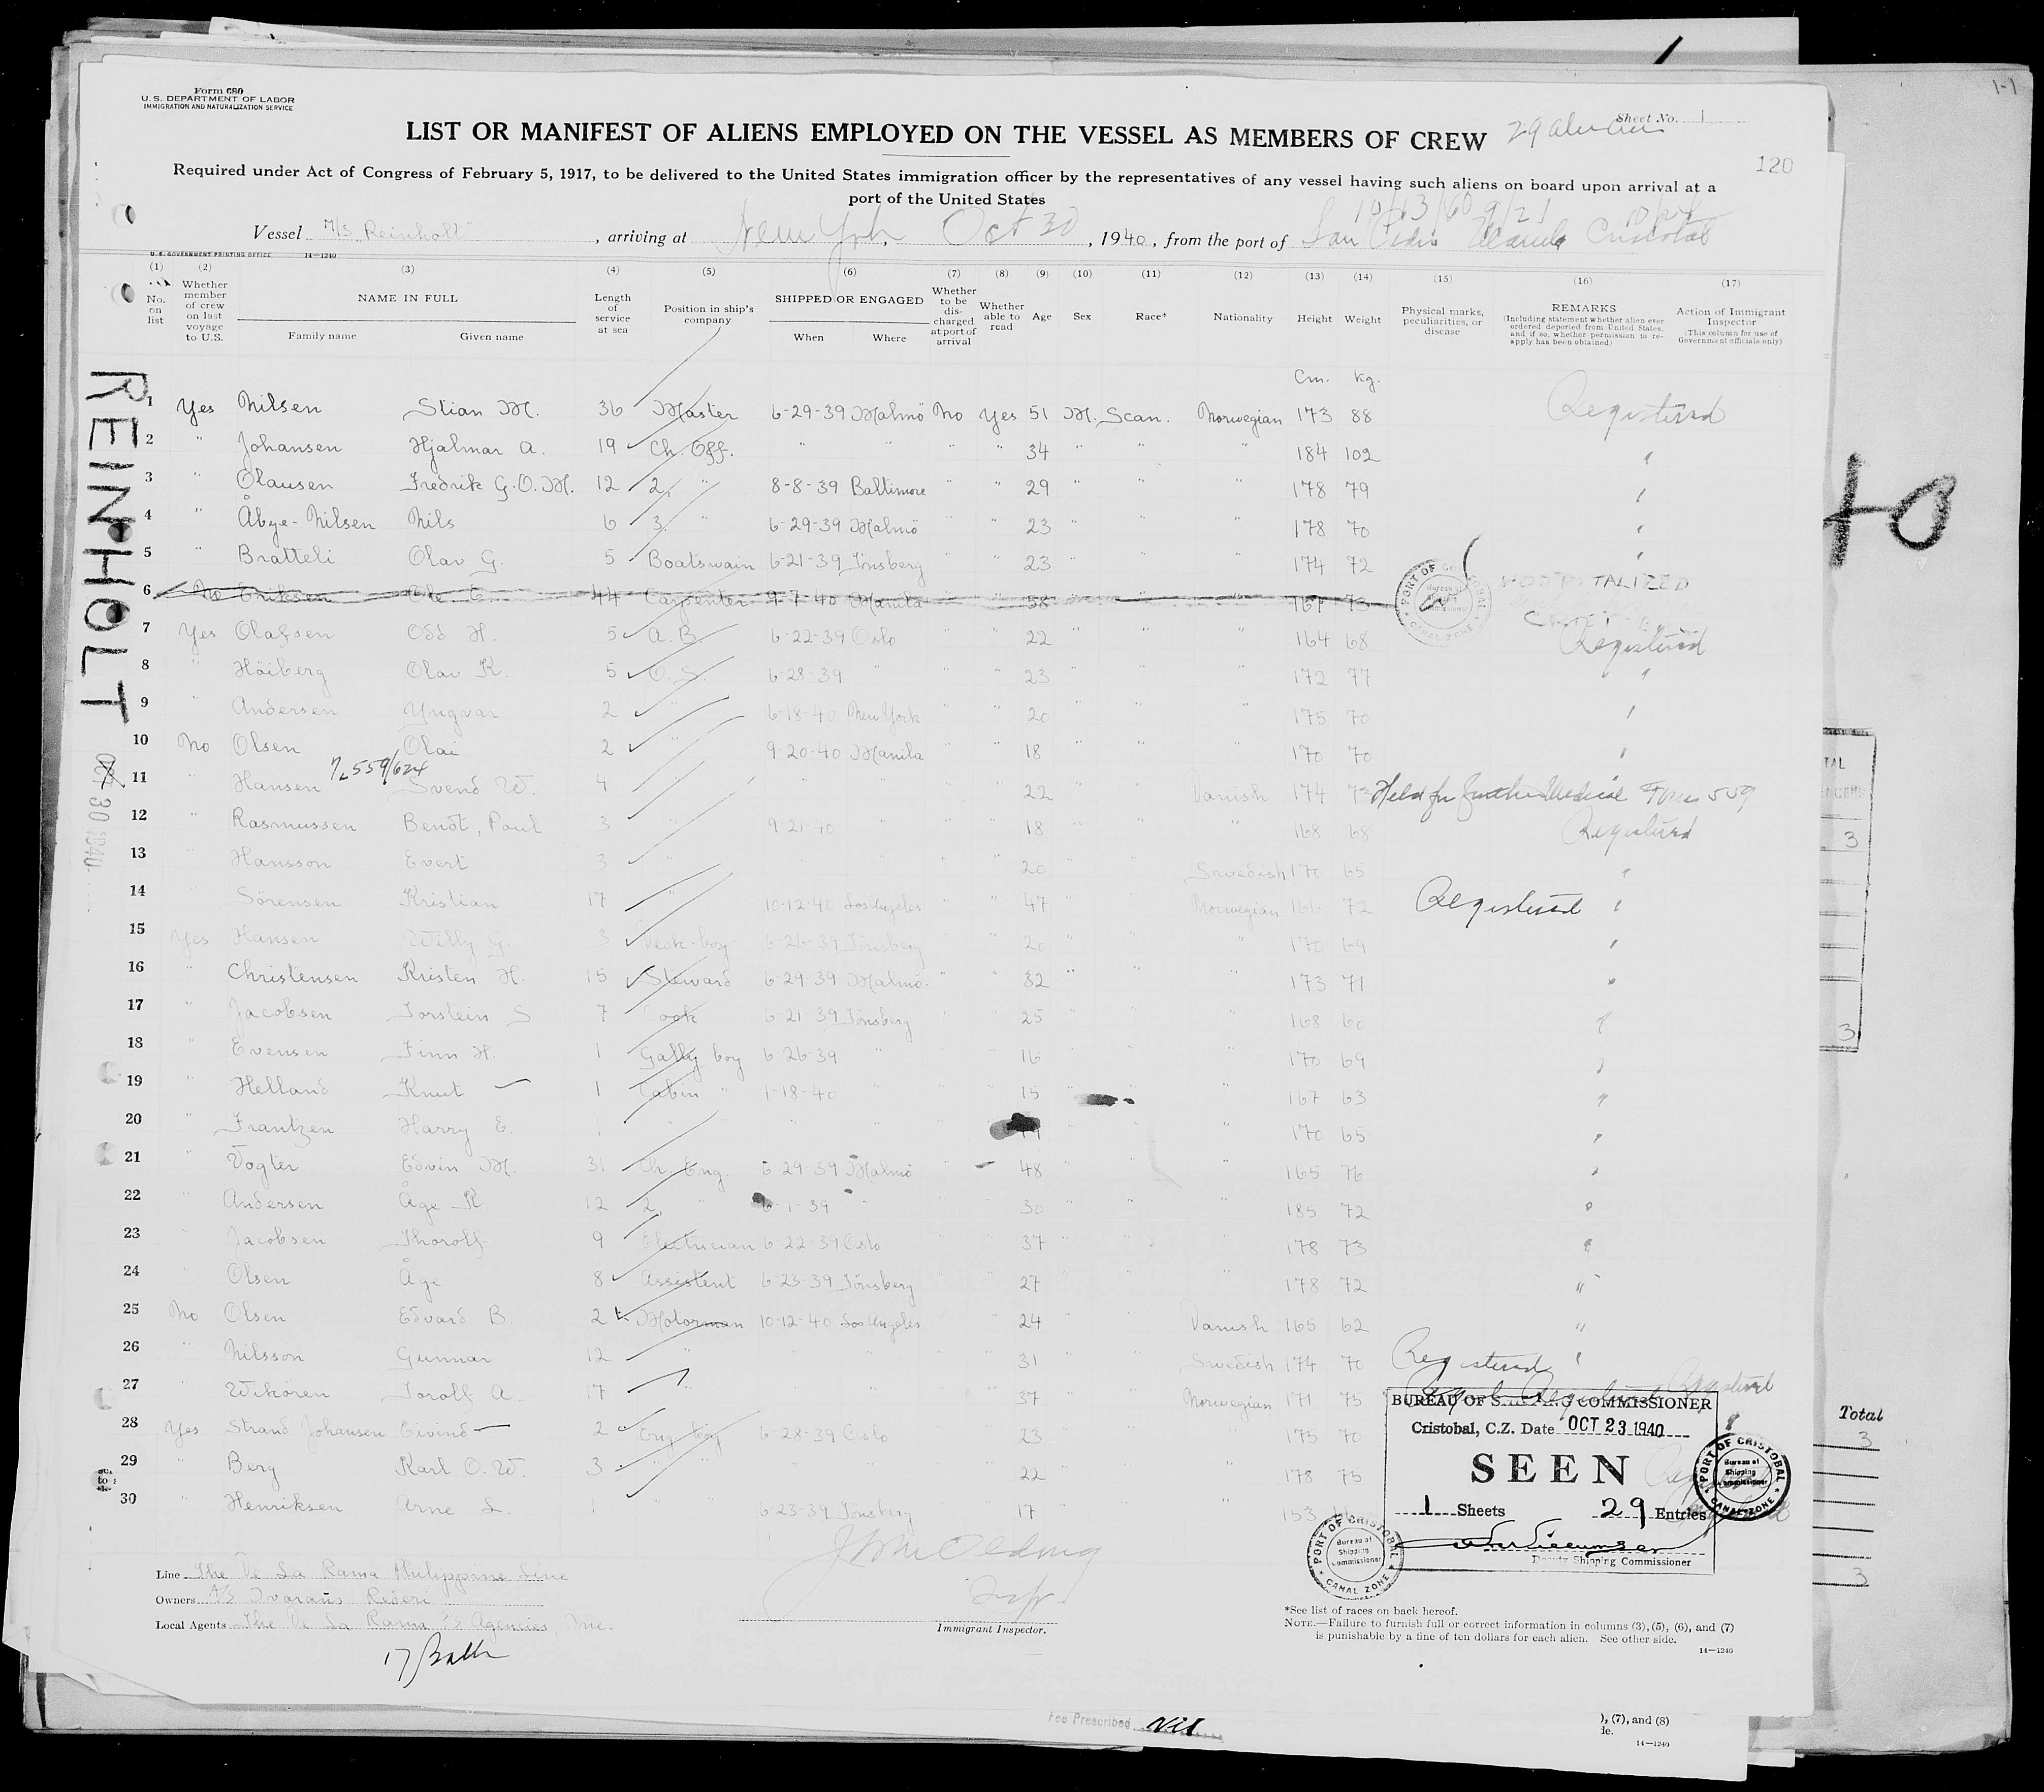 1-1
Form 680
U. S. DEPARTMENT OF LABOR
IMMIGRATION AND NATURALIZATION SERVICE
Sheet No. 1
LIST OR MANIFEST OF ALIENS EMPLOYED ON THE VESSEL AS MEMBERS OF CREW
120
Required under Act of Congress of February 5, 1917, to be delivered to the United States immigration officer by the representatives of any vessel having such aliens on board upon arrival at a
port of the United States
Vessel M/S "Reinholt", arriving at New York, Oct 30, 1940, from the port of San Pedro Manila Cristobal
U. S. GOVERNMENT PRINTING OFFICE 14—1240
(1) (2) (3) (4) (5) (6) (7) (8) (9) (10) (11) (12) (13) (14) (15) (16) (17)
No. on list
Whether member of crew on last voyage to U.S.
NAME IN FULL
Family name Given name
Length of service at sea
Position in ship's company
SHIPPED OR ENGAGED
When Where
Whether to be discharged at port of arrival
Whether able to read
Age Sex Race* Nationality Height Weight
Physical marks, peculiarities, or disease
REMARKS
(Including statement whether alien ever ordered deported from United States, and if so, whether permission to reapply has been obtained)
Action of Immigrant Inspector
(This column for use of Government officials only)
Cm. Kg.
REINHOLT
OCT 30 1940
1 Yes Nilsen Stian M. 36 Master 6-29-39 Malmö No Yes 51 M. Scan. Norwegian 173 88 Registered
2 " Johansen Hjalmar A. 19 Ch. Off. " " " " 34 " " " 184 102 "
3 " Olausen Fredrik G.O.M. 12 2. " 8-8-39 Baltimore " " 29 " " " 178 79 "
4 " Åbye-Nilsen Nils 6 3. " 6-29-39 Malmö " " 23 " " " 178 70 "
5 " Bratteli Olav G. 5 Boatswain 6-21-39 Tönsberg " " 23 " " " 174 72 "
6 No Eriksen Ole E. 44 Carpenter 9-7-40 Manila " " 58 " " " 167 73 HOSPITALIZED
7 Yes Olafsen Odd H. 5 A.B. 6-22-39 Oslo " " 22 " " " 164 68 Registered
8 " Höiberg Olav K. 5 O.S. 6-28-39 " " " 23 " " " 172 77 "
9 " Andersen Yngvar 2 " 6-18-40 New York " " 20 " " " 175 70 "
10 No Olsen Olai 2 " 9-20-40 Manila " " 18 " " " 170 70 "
11 " Hansen Svend W. 4 " " " " " 22 " " Danish 174 73 Held for further Medical Form 559
12 " Rasmussen Bendt, Poul 3 " 9-21-40 " " " 18 " " " 168 68 Registered
13 " Hansson Evert 3 " " " " " 20 " " Swedish 170 65 "
14 " Sörensen Kristian 17 " 10-12-40 Los Angeles " " 47 " " Norwegian 166 72 Registered "
15 Yes Hansen Willy G. 3 Deck-boy 6-26-39 Tönsberg " " 20 " " " 170 69 "
16 " Christensen Kristen H. 15 Steward 6-29-39 Malmö " " 32 " " " 173 71 "
17 " Jacobsen Torstein S 7 Cook 6-21-39 Tönsberg " " 25 " " " 168 60 "
18 " Evensen Finn H. 1 Gally boy 6-26-39 " " " 16 " " " 170 69 "
19 " Helland Knut 1 Cabin " 1-18-40 " " " 15 " " " 167 63 "
20 " Frantzen Harry E. 1 " " " " " 170 65 "
21 " Vogter Edvin M. 31 Ch. Eng. 6-29-39 Malmö " 48 " " " 165 76 "
22 " Andersen Åge R. 12 2. " 6-1-39 " " " 30 " " " 185 72 "
23 " Jacobsen Thorolf 9 Electrician 6-22-39 Oslo " " 37 " " " 178 73 "
24 " Olsen Åge 8 Assistent 6-23-39 Tönsberg " " 27 " " " 178 72 "
25 No Olsen Edvard B. 2 Motorman 10-12-40 Los Angeles " " 24 " " Danish 165 62 "
26 " Nilsson Gunnar 12 " " " " " 31 " " Swedish 174 70 Registered "
27 " Wikören Torolf A. 17 " " " " " 37 " " Norwegian 171 75 Registered
28 Yes Strand Johansen Eivind 2 Eng. boy 6-28-39 Oslo " " 23 " " " 175 70
29 " Berg Karl O.W. 3 " " " " " 22 " " " 178 75
30 " Henriksen Arne L. 1 " " 6-23-39 Tönsberg " " 17 " " " 153
PORT OF CRISTOBAL
Bureau of Shipping Commissioner
CANAL ZONE
BUREAU OF SHIPPING COMMISSIONER
Cristobal, C.Z. Date OCT 23 1940
SEEN
1 Sheets 29 Entries
Deputy Shipping Commissioner
Line The De La Rama Philippine Line
Owners A/S Ivarans Rederi
Local Agents The De La Rama S/S Agencies Inc.
Immigrant Inspector.
*See list of races on back hereof.
NOTE.—Failure to furnish full or correct information in columns (3), (5), (6), and (7)
is punishable by a fine of ten dollars for each alien. See other side.
14—1240
Fee Prescribed Nil
), (7), and (8)
de.
14—1240
Total
3
3